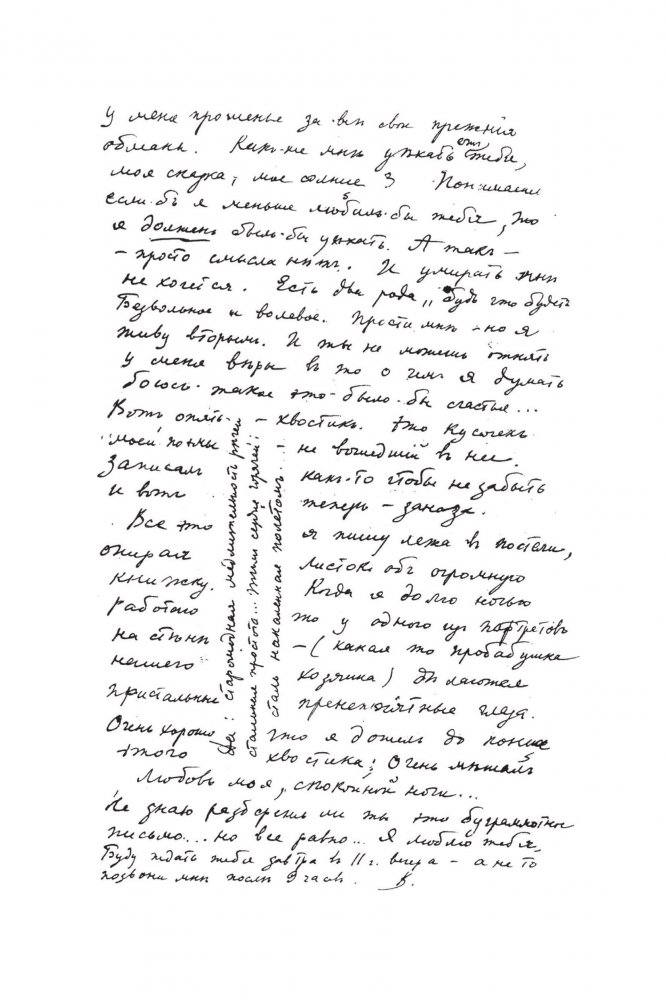 у меня прощенье за всѣ свои прежнiя
обманы. Какъ-же мнѣ уѣхать отъ тебя,
моя сказка, мое солнце? Понимаешь
если-бъ я меньше любилъ-бы тебя, то
я долженъ былъ-бы уѣхать. А такъ –
– просто смысла нѣтъ. И умирать мнѣ
не хочется. Есть два рода „будь что будетъ"
Безвольное и волевое. Прости мнѣ – но я
живу вторымъ. И ты не можешь отнять
у меня вѣры въ то о чемъ я думать
боюсь – такое это было-бы счастье...
Вотъ опять – хвостикъ. Это кусочекъ
моей поэмы – не вошедшiй въ нее.
Записалъ какъ-то чтобы не забыть
и вотъ теперь – заноза.
Все это я пишу лежа въ постели,
опирая листокъ объ огромную
книжку. Когда я долго ночью
работаю то у одного изъ портретовъ
на стѣнѣ – (какая то прабабушка
нашего хозяина) дѣлаются
пристальные пренепрiятные глаза.
Очень хорошо что я дошелъ до конца
этого хвостика; очень мѣшалъ
Да: старомодная медлительность рѣчей
стальная простота... Тѣмъ сердце горячѣй:
сталь накаленная полетомъ...
Любовь моя, спокойной ночи...
Не знаю разберешь ли ты это безграмотное
письмо... Но все равно... Я люблю тебя.
Буду ждать тебя завтра въ 11 г. вечера – а не то
позвони мнѣ послѣ 9 часовъ. В.